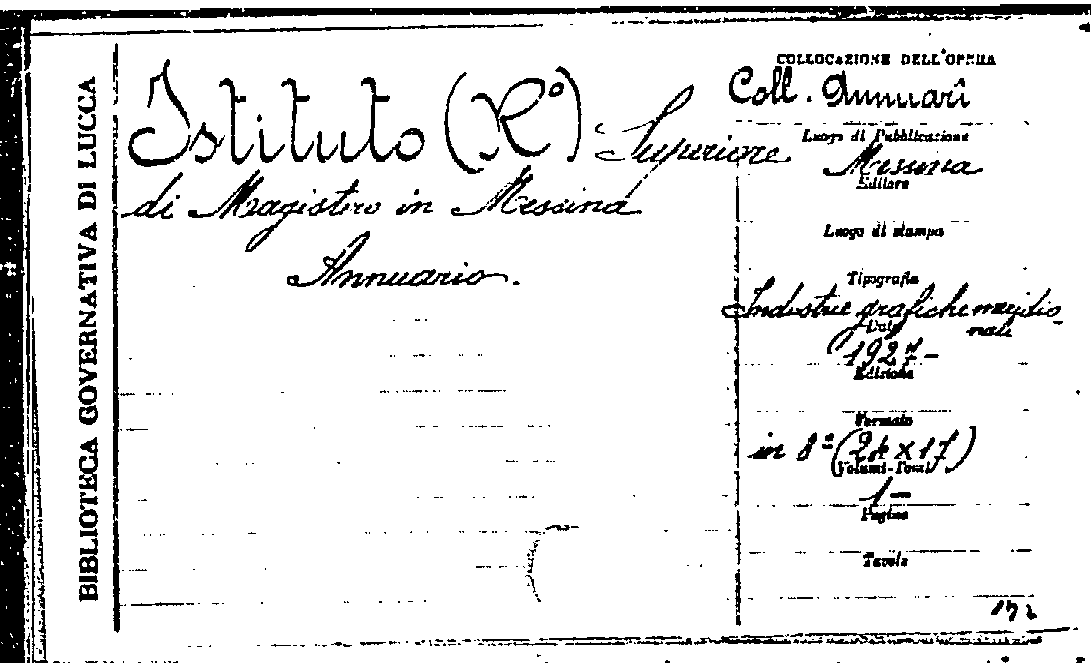 BIBLIOTECA GOVERNATIVA DI LUCCA
Istituto (R°) Superiore
di Magistero in Messina
Annuario.
COLLOCAZIONE DELL'OPERA
Coll. Annuari
Luogo di Pubblicazione
Messina
Editore
Luogo di stampa
Tipografia
Industrie grafiche meridio-
nali
Data
1927-
Edizione
Formato
in 8° (24 x 17)
Volumi-Tomi
1-
Pagine
Tavole